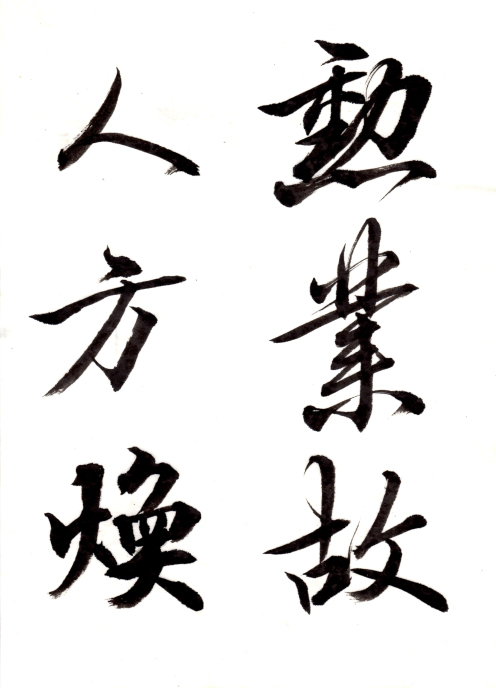 勲業故
人方煥